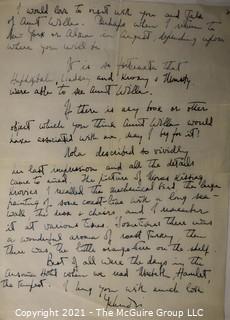 I would love to visit with you and talk
of Aunt Willa. Perhaps when I return to
New York or Alban in August, depending upon
where you will be
It is so fortunate that
Lindsay, and and
were able to see Aunt Willa.
If there is any book or other
object which you think Aunt Willa would
have associated with me, may I try for it!
described so vividly
her last impression and all the details
came to mind. The picture of Horses kissing
I recalled the mechanical bird the large
painting of some coast-line with a long sea-
walk the and chairs, and I remember
it at various times. Sometimes there was
a wonderful aroma of roast turkey then
there was the little orange tree on the shelf
Best of all were the days in the
Hotel when we read Macbeth, Hamlet
the Tempest. I hug you with much love
Copyright 2021 - The McGuire Group LLC